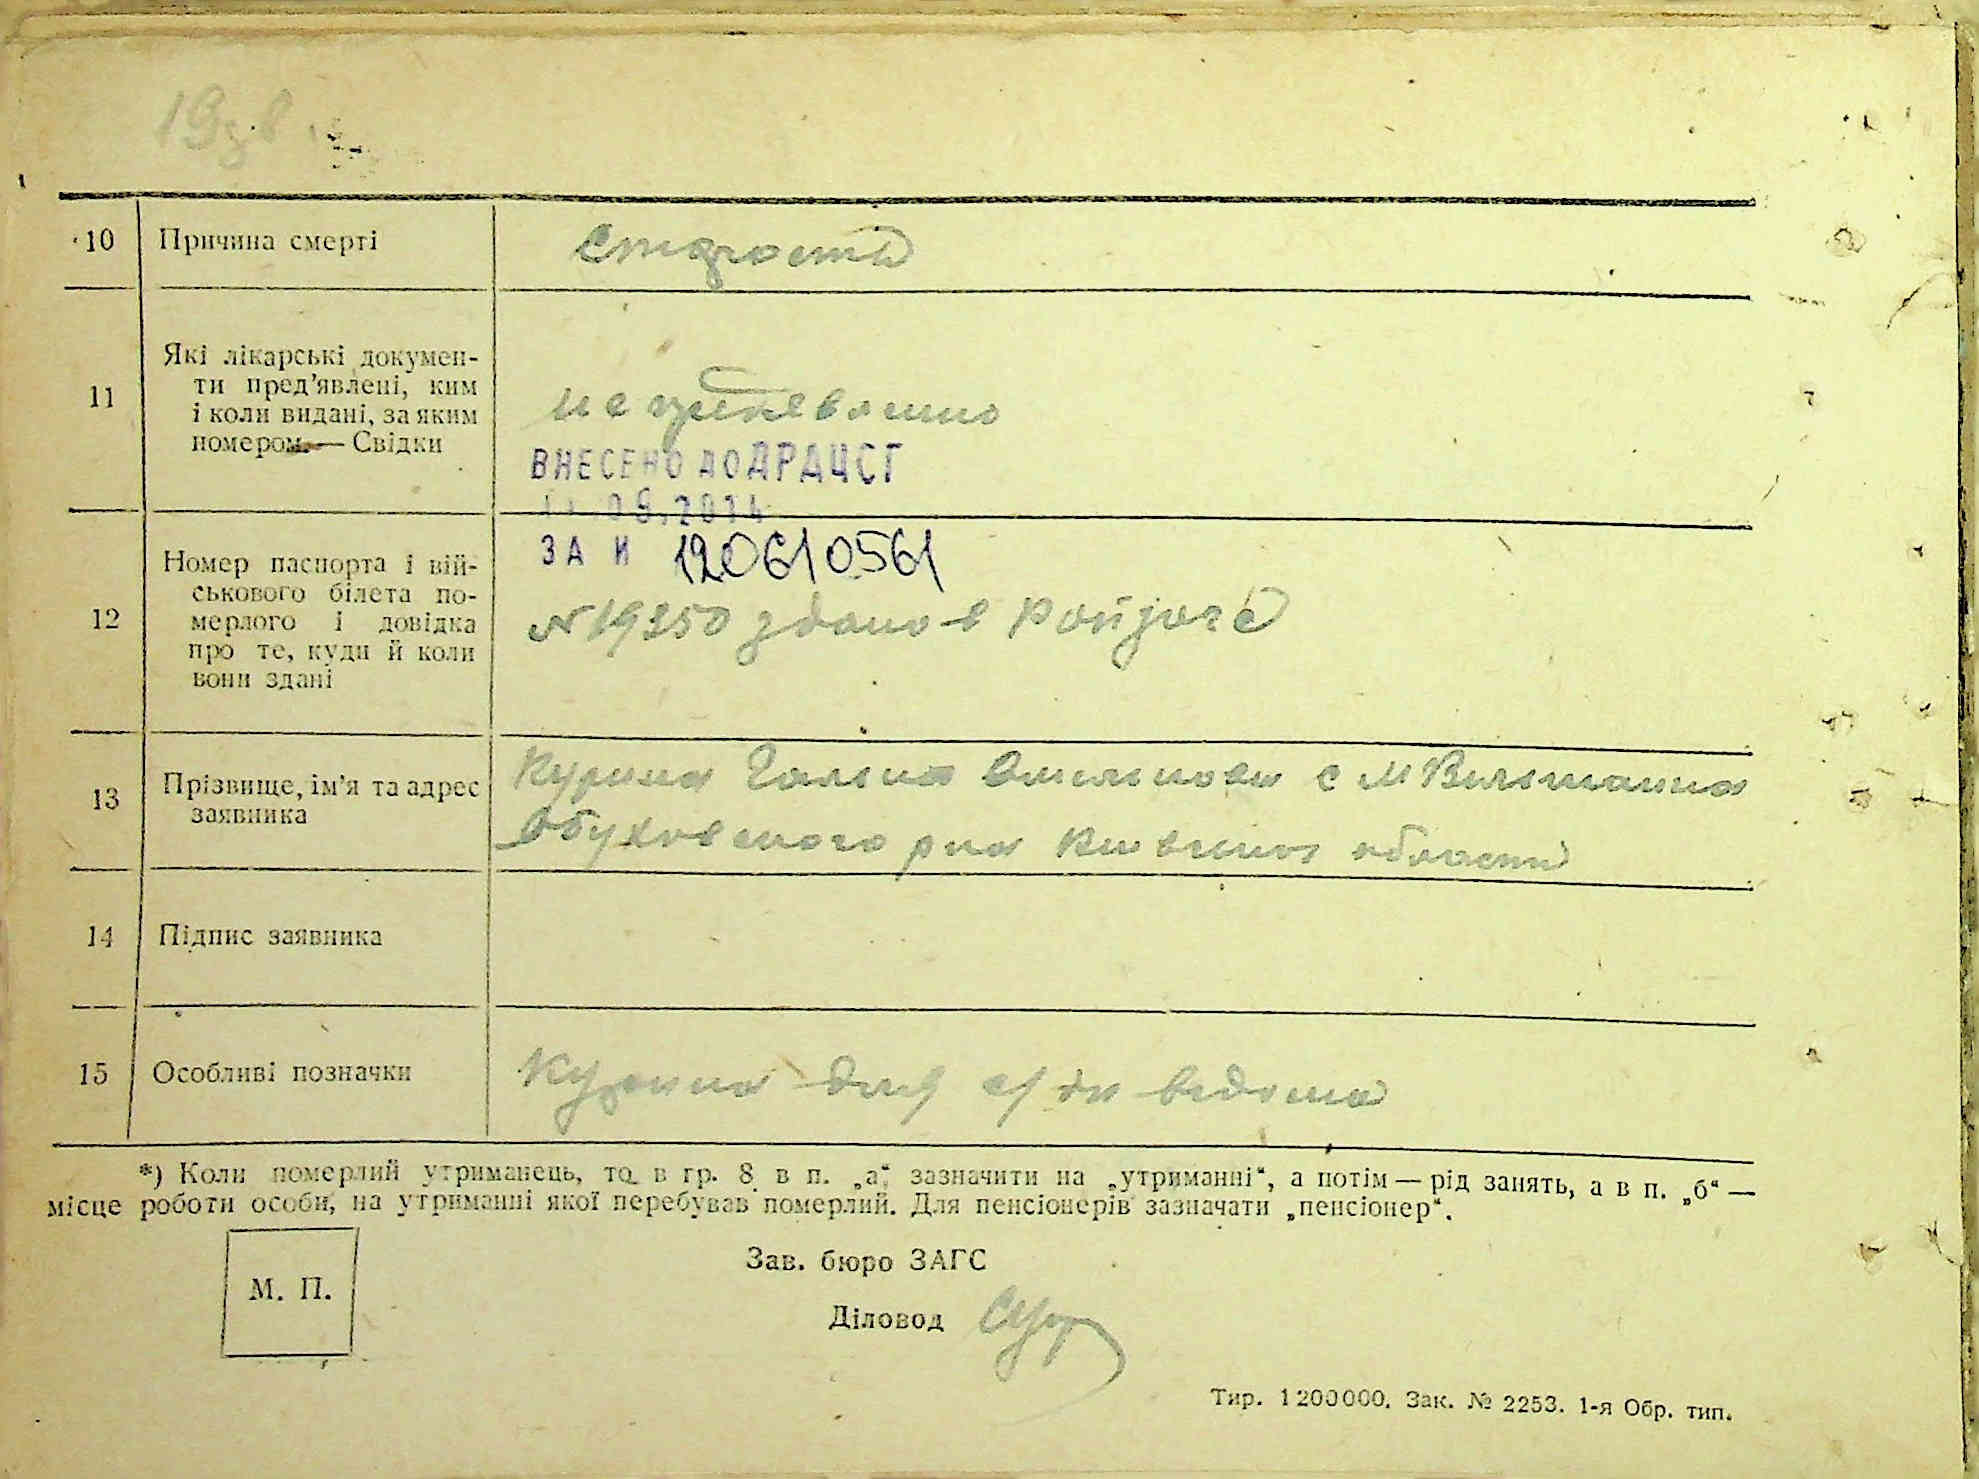 10 Причина смерті
Старость
Які лікарські докумен-
ти пред’явлені, ким
11 і коли видані, за яким
номером. — Свідки
не
ВНЕСЕНО ДО ДРАЦСГ
09.2014
ЗА И 120610561
Номер паспорта і вій-
ськового білета по-
12 мерлого і довідка
про те, куди й коли
вони здані
№ 19350 здано в
13 Прізвище, ім’я та адрес
заявника
Курина Галина с М Вильшанка
Обуховского рна области
14 Підпис заявника
15 Особливі позначки
Курина
*) Коли померлий утриманець, то в гр. 8 в п. „а“ зазначити на „утриманні“, а потім — рід занять, а в п. „б“ —
місце роботи особи, на утриманні якої перебував померлий. Для пенсіонерів зазначати „пенсіонер“.
М. П.
Зав. бюро ЗАГС
Діловод
Тир. 1200000. Зак. № 2253. 1-я Обр. тип.